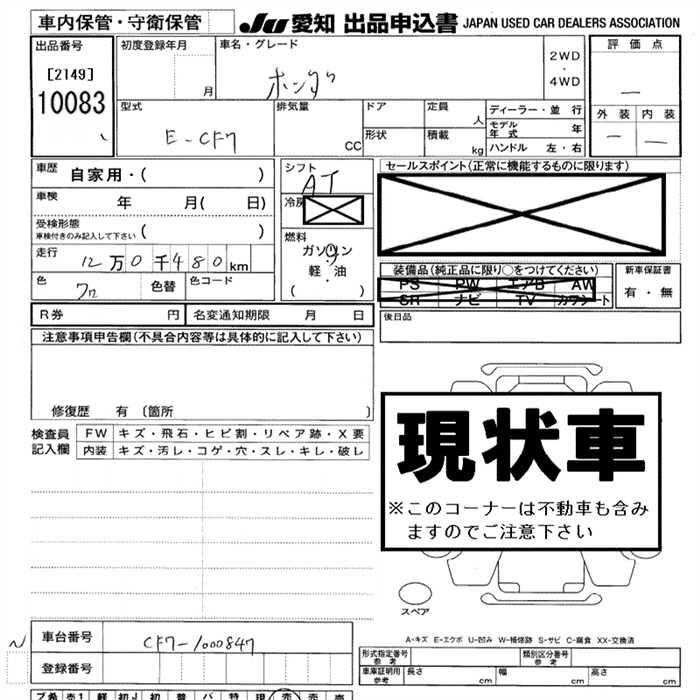 車内保管・守衛保管
JU 愛知 出品申込書 JAPAN USED CAR DEALERS ASSOCIATION
出品番号
[2149]
10083
初度登録年月
月
車名・グレード
ホンダ
2WD
・
4WD
評価点
—
外装 内装
— —
型式
E-CF7
排気量
CC
ドア
形状
定員
人
積載
kg
ディーラー・並行
モデル年式 年
ハンドル 左・右
車歴
自家用・( )
車検
年 月( 日)
受検形態
車検付きのみ記入して下さい ( )
走行
12万0千480km
色
クロ
色替
色コード
シフト
AT
冷房
燃料
ガソリン
軽・油
( )
セールスポイント(正常に機能するものに限ります)
装備品(純正品に限り○をつけてください)
PS PW エアB AW
SR ナビ TV カワシート
新車保証書
有・無
後日品
R券 円
名変通知期限 月 日
注意事項申告欄(不具合内容等は具体的に記入して下さい)
修復歴 有〔箇所 〕
検査員
記入欄
FW キズ・飛石・ヒビ割・リペア跡・X要
内装 キズ・汚レ・コゲ・穴・スレ・キレ・破レ
現状車
※このコーナーは不動車も含み
ますのでご注意下さい
スペア
A-キズ E-エクボ U-凹み W-補修跡 S-サビ C-腐食 XX-交換済
車台番号
CF7-1000847
登録番号
形式指定番号
参考
類別区分番号
参考
車庫証明用
参考
長さ cm
幅 cm
高さ cm